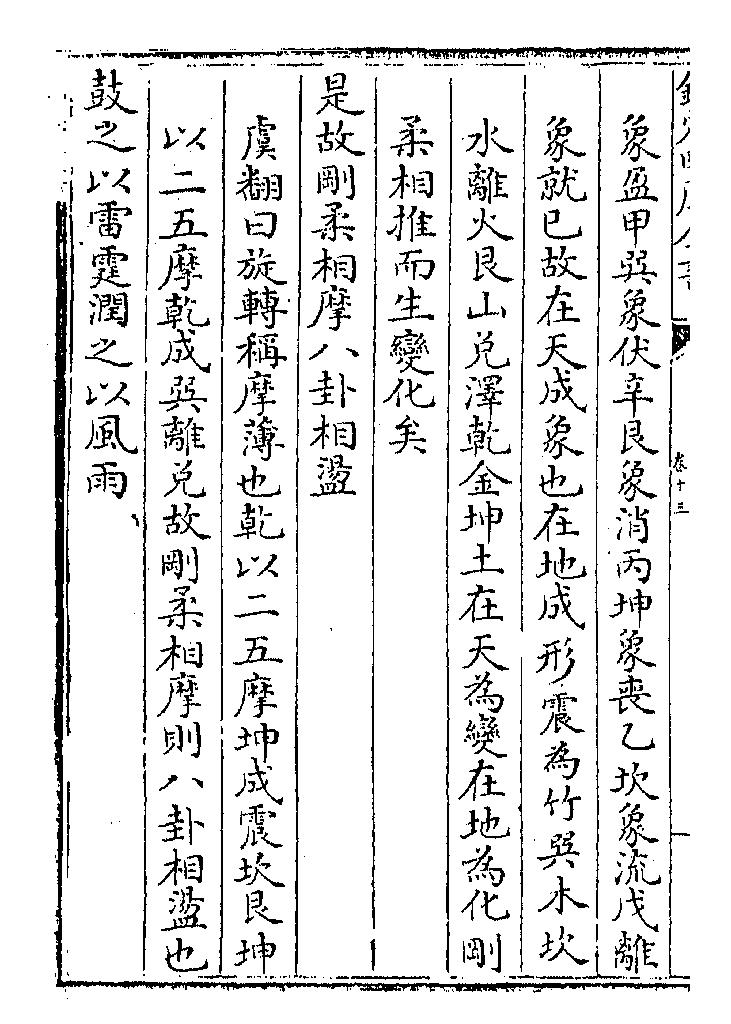 象盈甲巽象伏辛艮象消丙坤象喪乙坎象流戊離
象就已故在天成象也在地成形震為竹巽木坎
水離火艮山兑澤乾金坤土在天為變在地為化剛
柔相推而生變化矣
是故剛柔相摩八卦相盪
虞翻曰旋轉稱摩薄也乾以二五摩坤成震坎艮坤
以二五摩乾成巽離兑故剛柔相摩則八卦相盪也
鼓之以雷霆潤之以風雨
卷十三